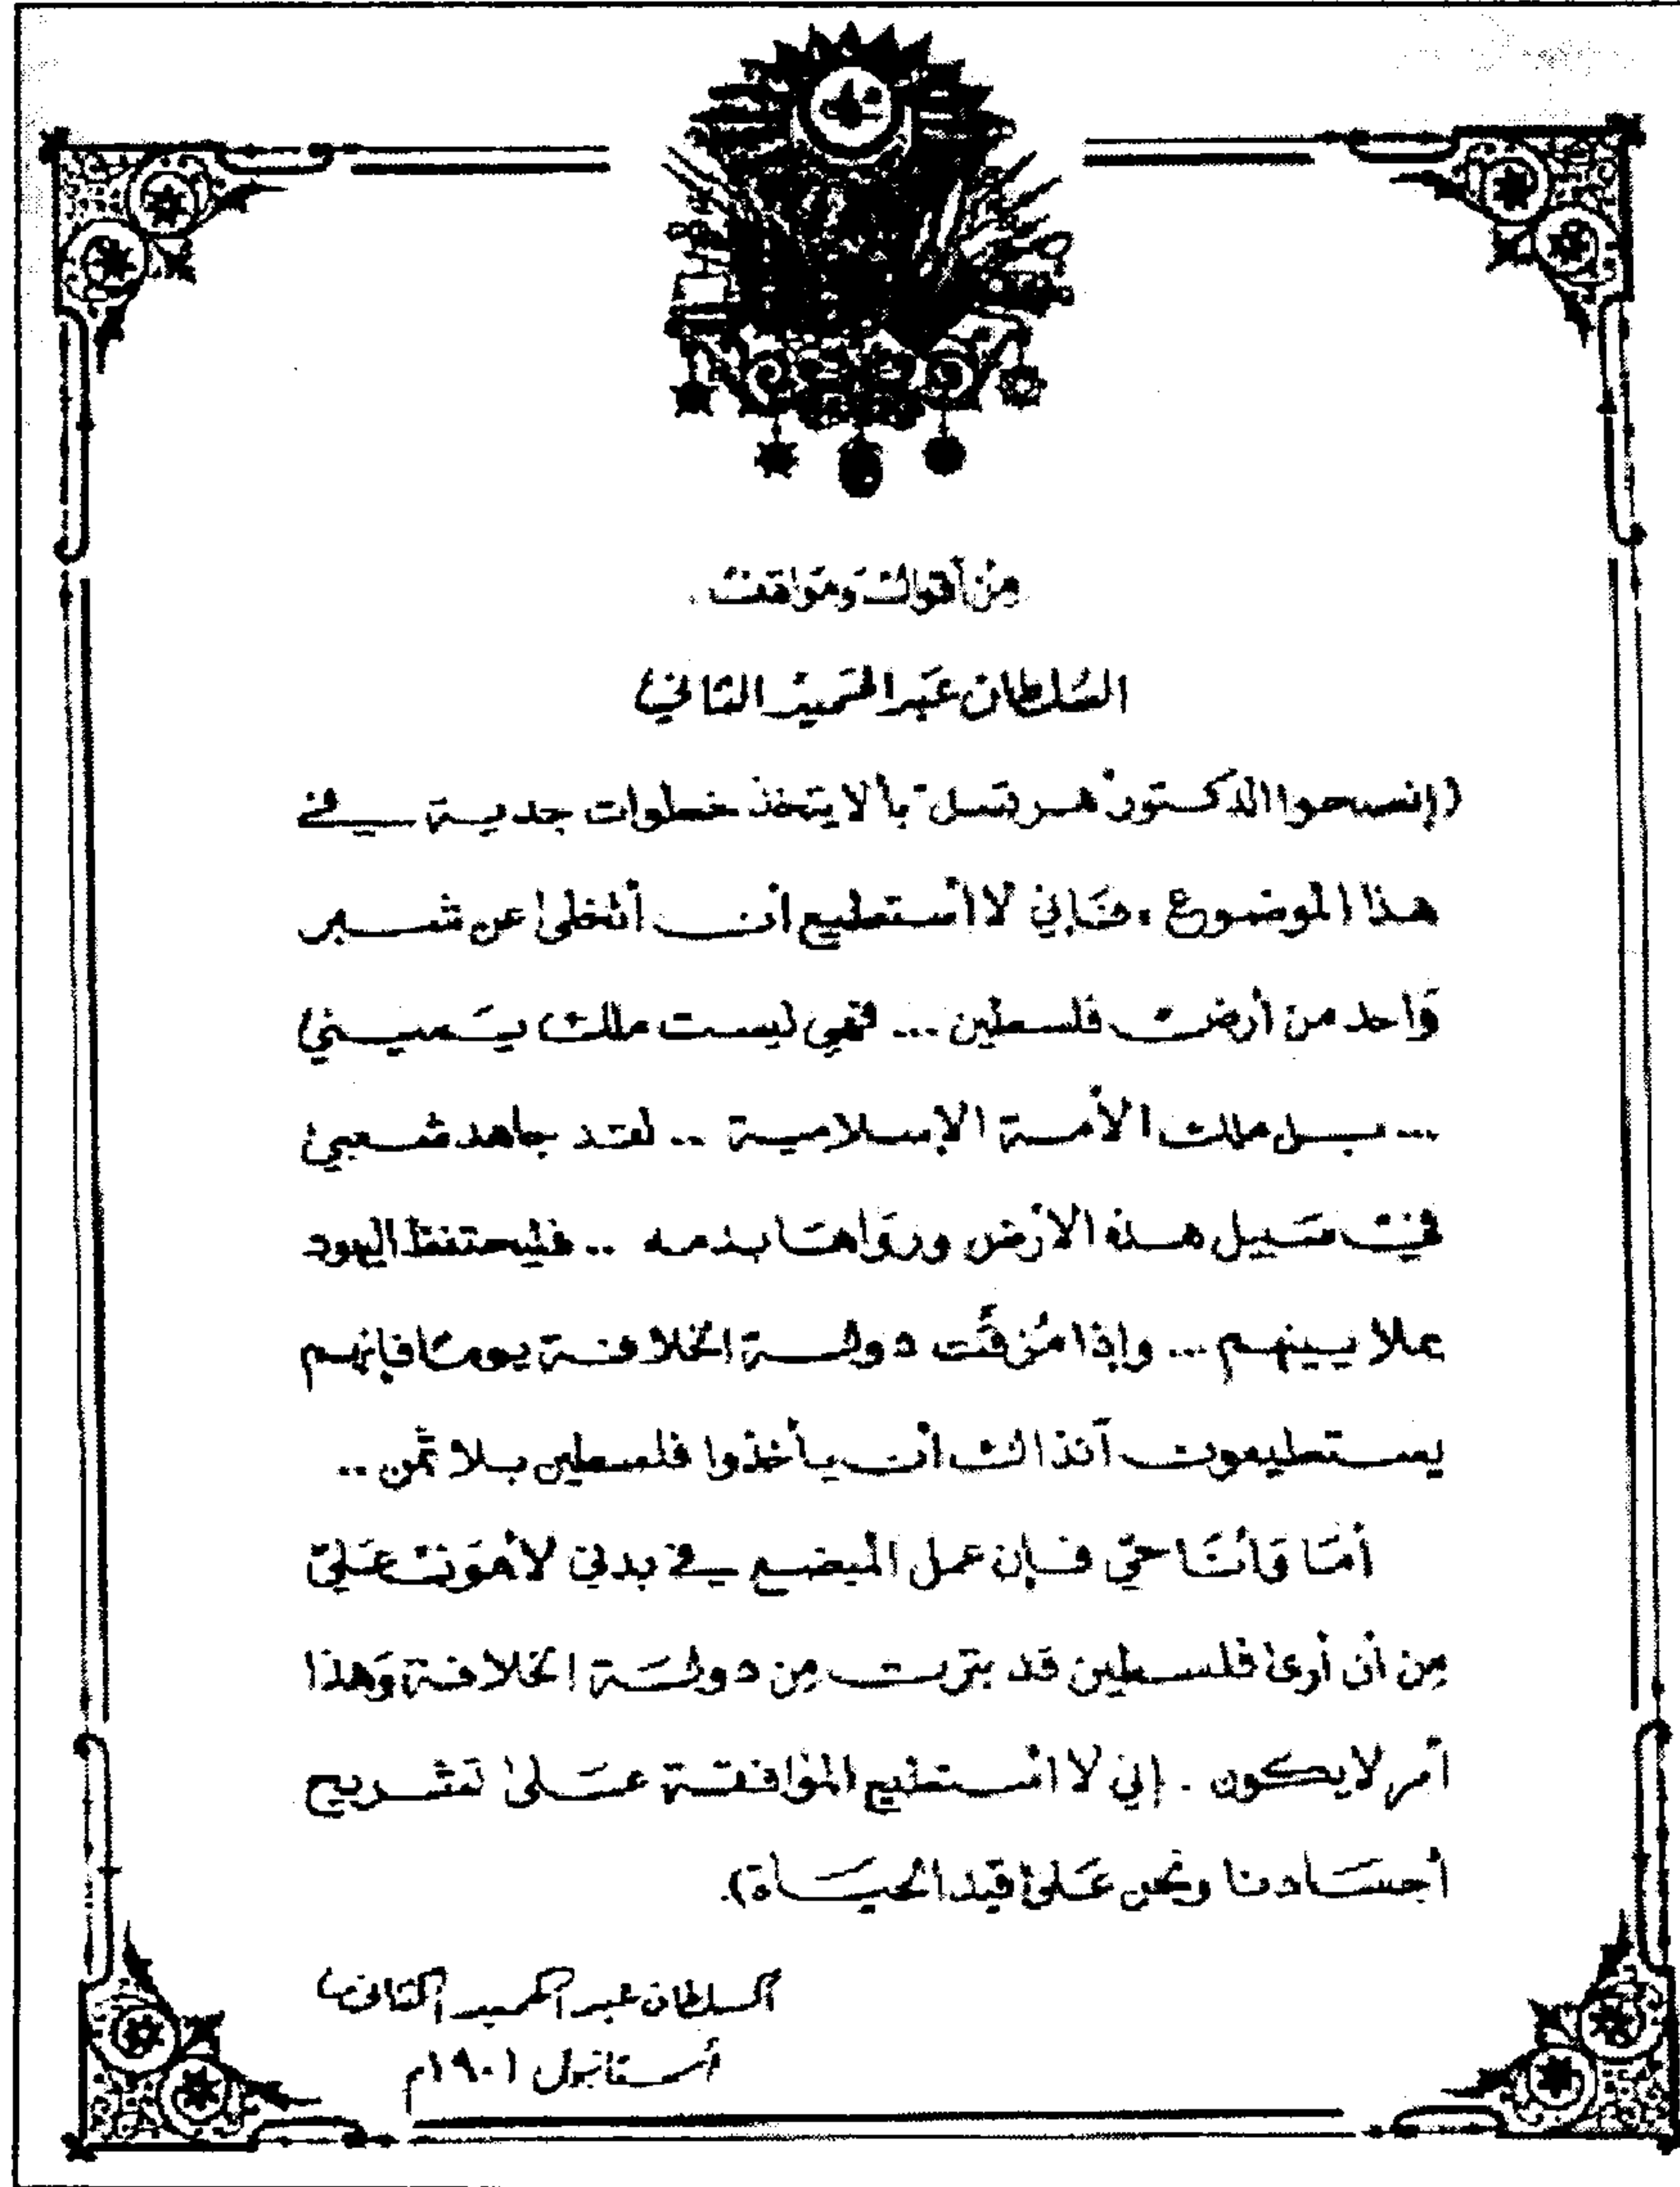 من أقوال ومواقف
السُلطان عَبد الحَميد الثاني
(إنصحوا الدكتور "هرتسل" بألا يتخذ خطوات جدية في
هذا الموضوع، فإني لا أستطيع أن أتخلى عن شبر
وَاحد من أرض فلسطين ... فهي ليست ملك يَميني
... بل ملك الأمة الإسلامية .. لقد جاهد شعبي
في سَبيل هذه الأرض وروَاها بدمه .. فليحتفظ اليهود
بملايينهم ... وإذا مُزقت دولة الخلافة يومًا فإنهم
يستطيعون آنذاك أن يأخذوا فلسطين بلا ثمن ..
أمَا وَأنَا حيّ فإن عمل المبضع في بدني لأهوَن عَليّ
مِن أن أرى فلسطين قد بترت مِن دولَة الخلافة وَهذا
أمر لا يكون. إني لا أستطيع الموَافقة عَلى تشريح
أجسَادنا ونحن عَلى قيد الحيَاة).
السلطان عبد الحميد الثاني
أستانبول ١٩٠١م